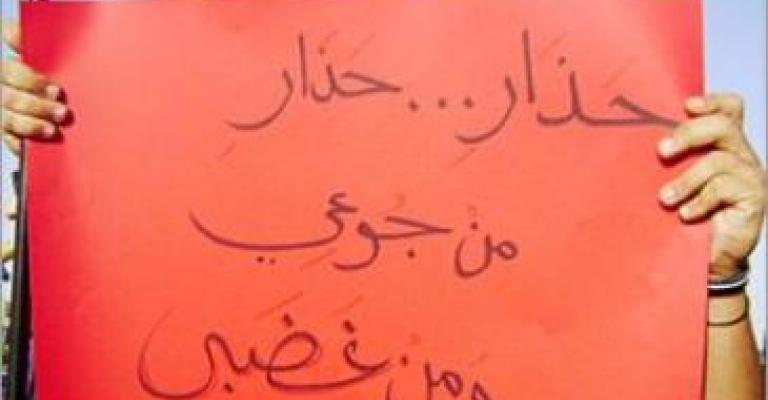 حَذارِ... حَذارِ
مِنْ جُوعي
وَمِنْ غَضَبي